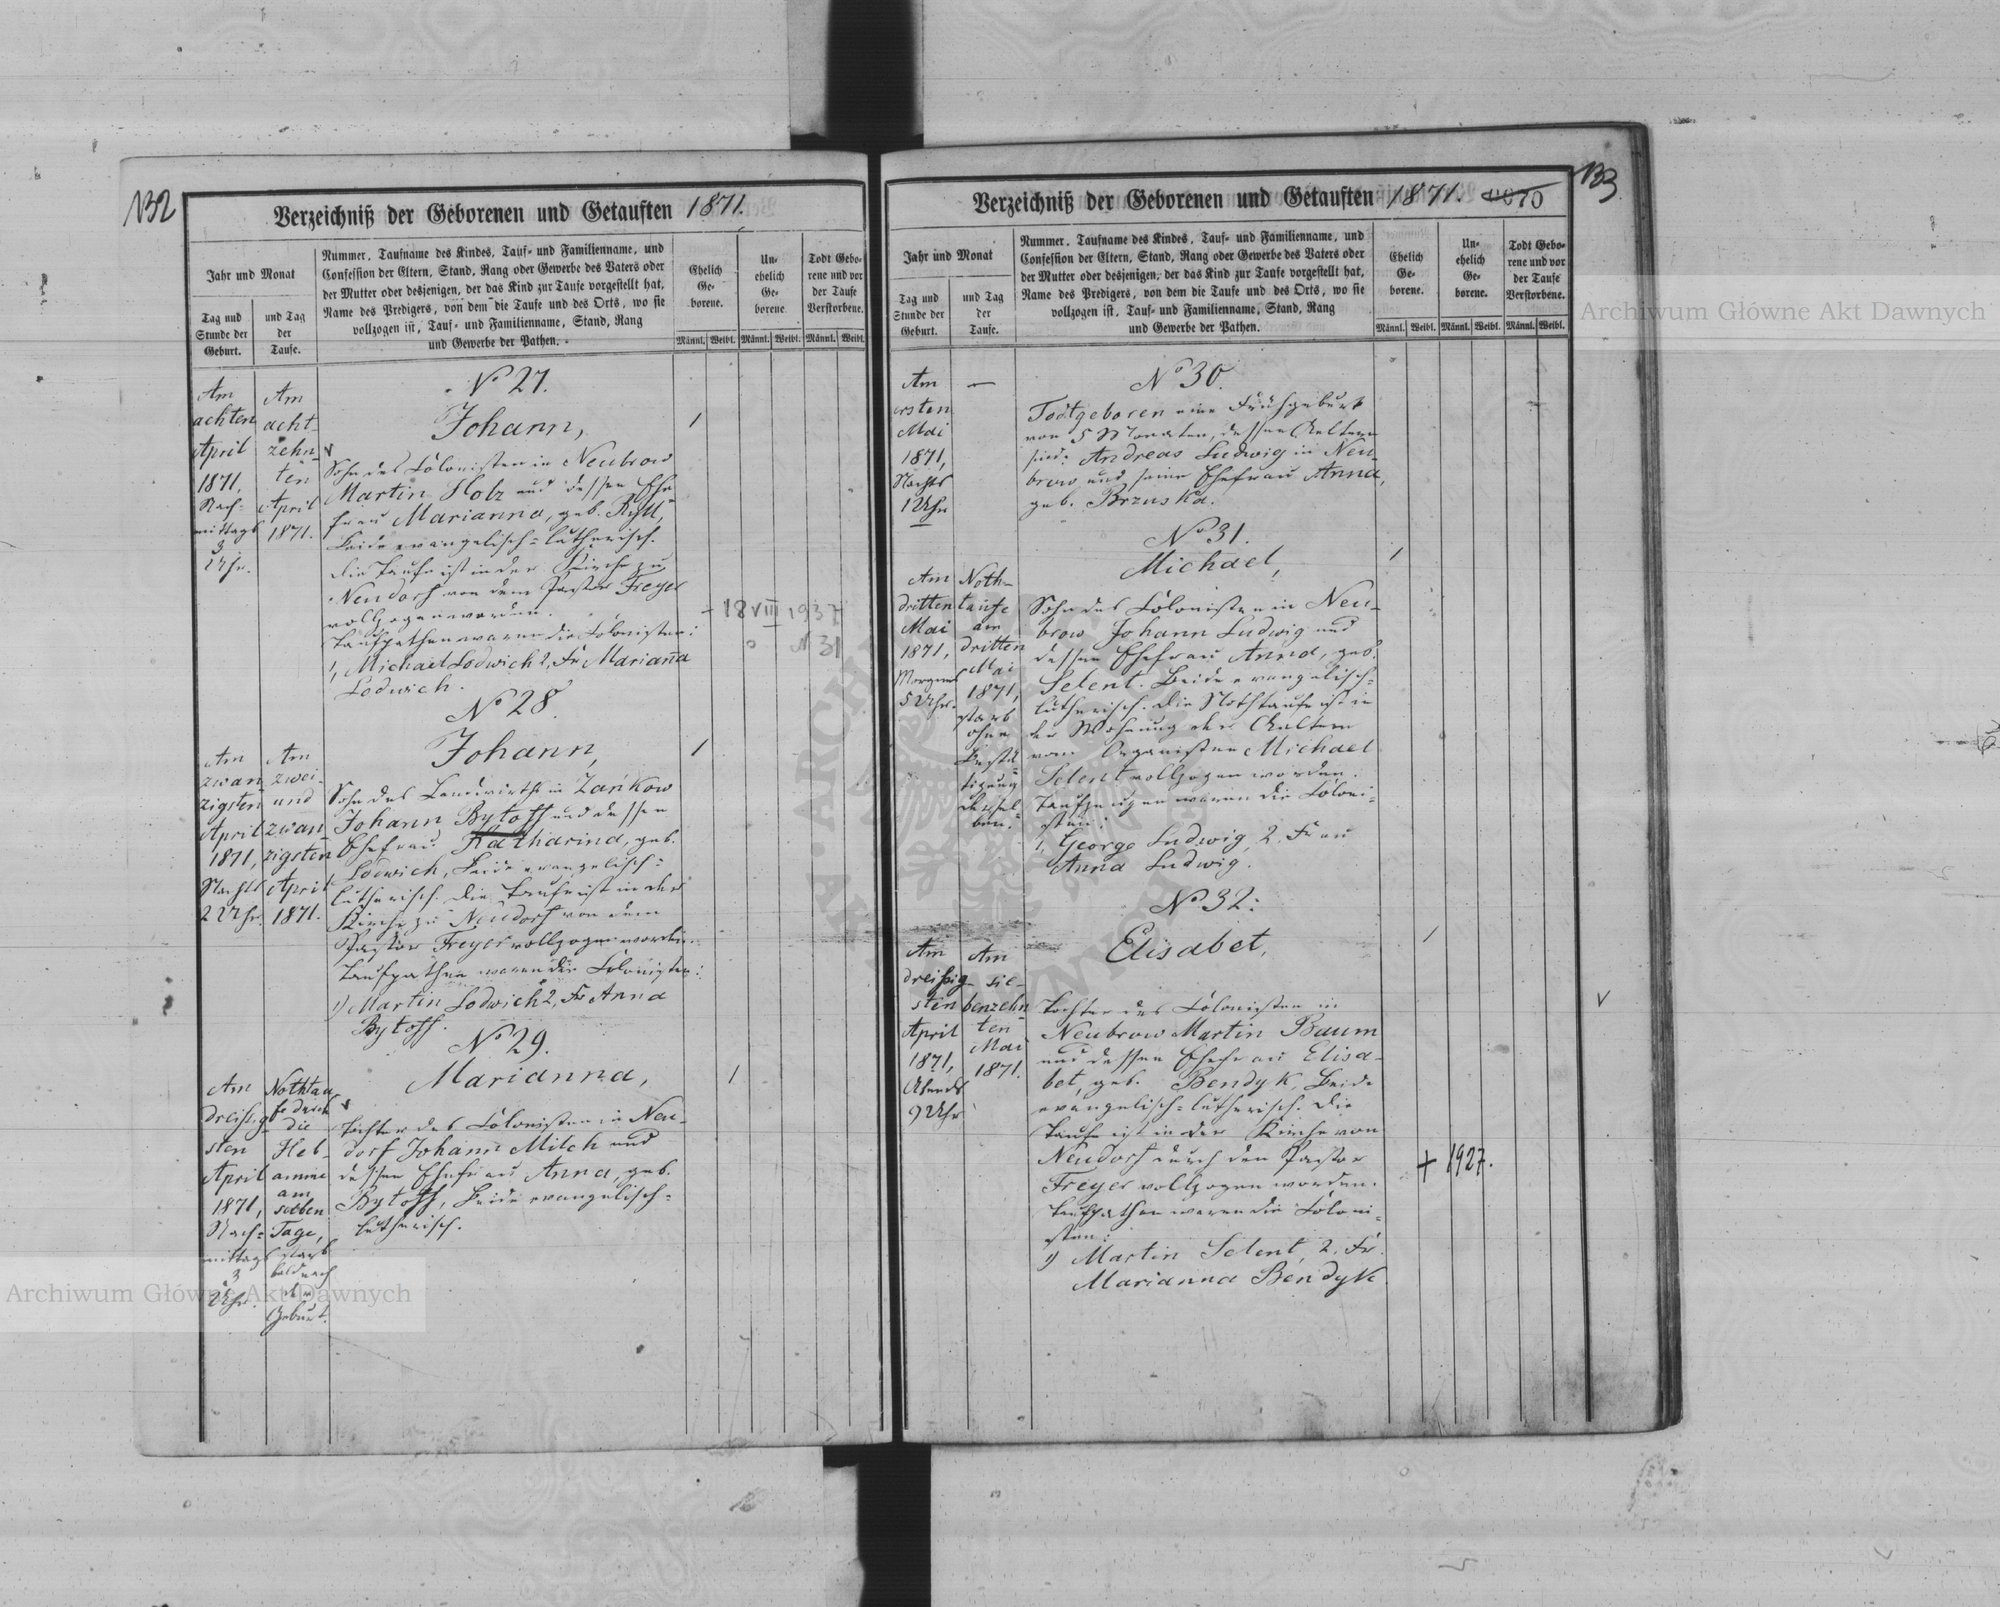 132
Verzeichniß der Geborenen und Getauften 1871.
Jahr und Monat
Tag und
Stunde der
Geburt.
und Tag
der
Taufe.
Nummer, Taufname des Kindes, Tauf- und Familienname, und
Confession der Eltern, Stand, Rang oder Gewerbe des Vaters oder
der Mutter oder desjenigen, der das Kind zur Taufe vorgestellt hat,
Name des Predigers, von dem die Taufe und des Orts, wo sie
vollzogen ist, Tauf- und Familienname, Stand, Rang
und Gewerbe der Pathen.
Ehelich
Ge-
borene.
Un-
ehelich
Ge-
borene
Todt Gebo-
rene und vor
der Taufe
Verstorbene.
Männl. Weibl. Männl. Weibl. Männl. Weibl.
Am
achten
April
1871,
Nach-
mittags
3
Uhr.
Am
acht-
zehn-
ten
April
1871.
No 27.
Johann,
Sohn des Colonisten in Neubrow
Martin Holz und dessen Ehe
frau Marianna, geb. Ryll,
beide evangelisch-lutherisch.
Die Taufe ist in der Kirche zu
Neudorf von dem Pastor Freyer
vollzogen worden.
Taufpathen waren die Colonisten:
1, Michael Lodwich 2, Fr Marianna
Lodwich.
+ 18 VIII 1937
N 31
Am
zwan-
zigsten
April
1871,
Nachts
2 Uhr.
Am
zwei-
und
zwan-
zigsten
April
1871.
No 28.
Johann,
Sohn des Landwirths in Zańkow
Johann Bytoff und dessen
Ehefrau Katharina, geb.
Lodwich, beide evangelisch-
lutherisch. Die Taufe ist in der
Kirche zu Neudorf von dem
Pastor Freyer vollzogen worden.
Taufpathen waren die Colonisten:
1) Martin Lodwich 2, Fr Anna
Bytoff.
Am
dreißig-
sten
April
1871,
Nach-
mittags
3
Uhr.
Nothtau
fe durch
die
Heb-
amme
am
selben
Tage,
starb
bald nach
der
Geburt.
No 29.
Marianna,
Tochter des Colonisten in Neu-
dorf Johann Milch und
dessen Ehefrau Anna, geb.
Bytoff, beide evangelisch-
lutherisch.
133
Verzeichniß der Geborenen und Getauften 1871.
Jahr und Monat
Tag und
Stunde der
Geburt.
und Tag
der
Taufe.
Nummer, Taufname des Kindes, Tauf- und Familienname, und
Confession der Eltern, Stand, Rang oder Gewerbe des Vaters oder
der Mutter oder desjenigen, der das Kind zur Taufe vorgestellt hat,
Name des Predigers, von dem die Taufe und des Orts, wo sie
vollzogen ist, Tauf- und Familienname, Stand, Rang
und Gewerbe der Pathen.
Ehelich
Ge-
borene.
Un-
ehelich
Ge-
borene.
Todt Gebo-
rene und vor
der Taufe
Verstorbene.
Männl. Weibl. Männl. Weibl. Männl. Weibl.
Am
ersten
Mai
1871,
Nachts
1 Uhr
—
No 30.
Todtgeboren eine Frühgeburt
von 5 Monaten, dessen Aeltern
sind: Andreas Ludwig in Neu-
brow und seine Ehefrau Anna,
geb. Brzuska.
Am
dritten
Mai
1871,
Morgens
5 Uhr.
Noth-
taufe
am
dritten
Mai
1871,
starb
ohne
Bestä-
tigung
dersel-
ben.
No 31.
Michael,
Sohn des Colonisten in Neu-
brow Johann Ludwig und
dessen Ehefrau Anna, geb.
Selent. Beide evangelisch-
lutherisch. Die Nothtaufe ist in
der Wohnung der Aeltern
vom Organisten Michael
Selent vollzogen worden.
Taufzeugen waren die Coloni-
sten:
1, George Ludwig, 2. Frau
Anna Ludwig.
Am
dreißig-
sten
April
1871,
Abends
9 Uhr
Am
sie-
benzehn-
ten
Mai
1871.
No 32.
Elisabet,
Tochter des Colonisten in
Neubrow Martin Baum
und dessen Ehefrau Elisa-
bet, geb. Bendyk, beide
evangelisch-lutherisch. Die
Taufe ist in der Kirche von
Neudorf durch den Pastor
Freyer vollzogen worden.
Taufpathen waren die Coloni-
sten:
1) Martin Selent, 2. Fr.
Marianna Bendyk
+ 1927.
Archiwum Główne Akt Dawnych
Archiwum Główne Akt Dawnych